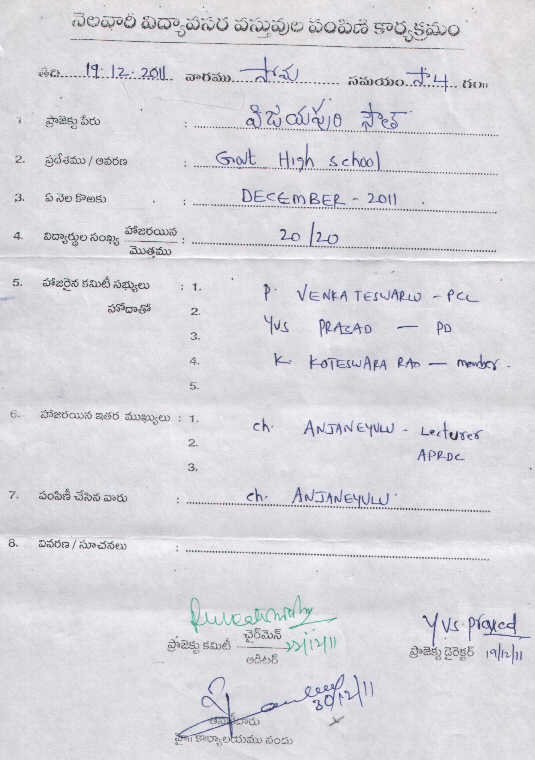 నెలవారీ విద్యావసర వస్తువుల పంపిణీ కార్యక్రమం
తేది 19.12.2011 వారము సోమ సమయం సా 4 గం॥
1 ప్రాజెక్టు పేరు : విజయపురి సౌత్
2. ప్రదేశము / ఆవరణ : Govt High school
3. ఏ నెల కొఱకు : DECEMBER - 2011
4. విద్యార్థుల సంఖ్య హాజరయిన / మొత్తము : 20/20
5. హాజరైన కమిటీ సభ్యులు : 1. P. VENKATESWARLU - PCC
హోదాతో 2.
YVS PRASAD — PD
3.
4. K. KOTESWARA RAO — member.
5.
6. హాజరయిన ఇతర ముఖ్యులు : 1. ch. ANJANEYULU - Lecturer
2. APRDC
3.
7. పంపిణీ చేసిన వారు : ch. ANJANEYULU.
8. వివరణ / సూచనలు :
ప్రాజెక్టు కమిటీ ఛైర్‌మెన్ / ఆడిటర్ 22/12/11
YVS Prasad
ప్రాజెక్టు డైరెక్టర్ 19/12/11
30/12/11
కార్యాలయము నందు